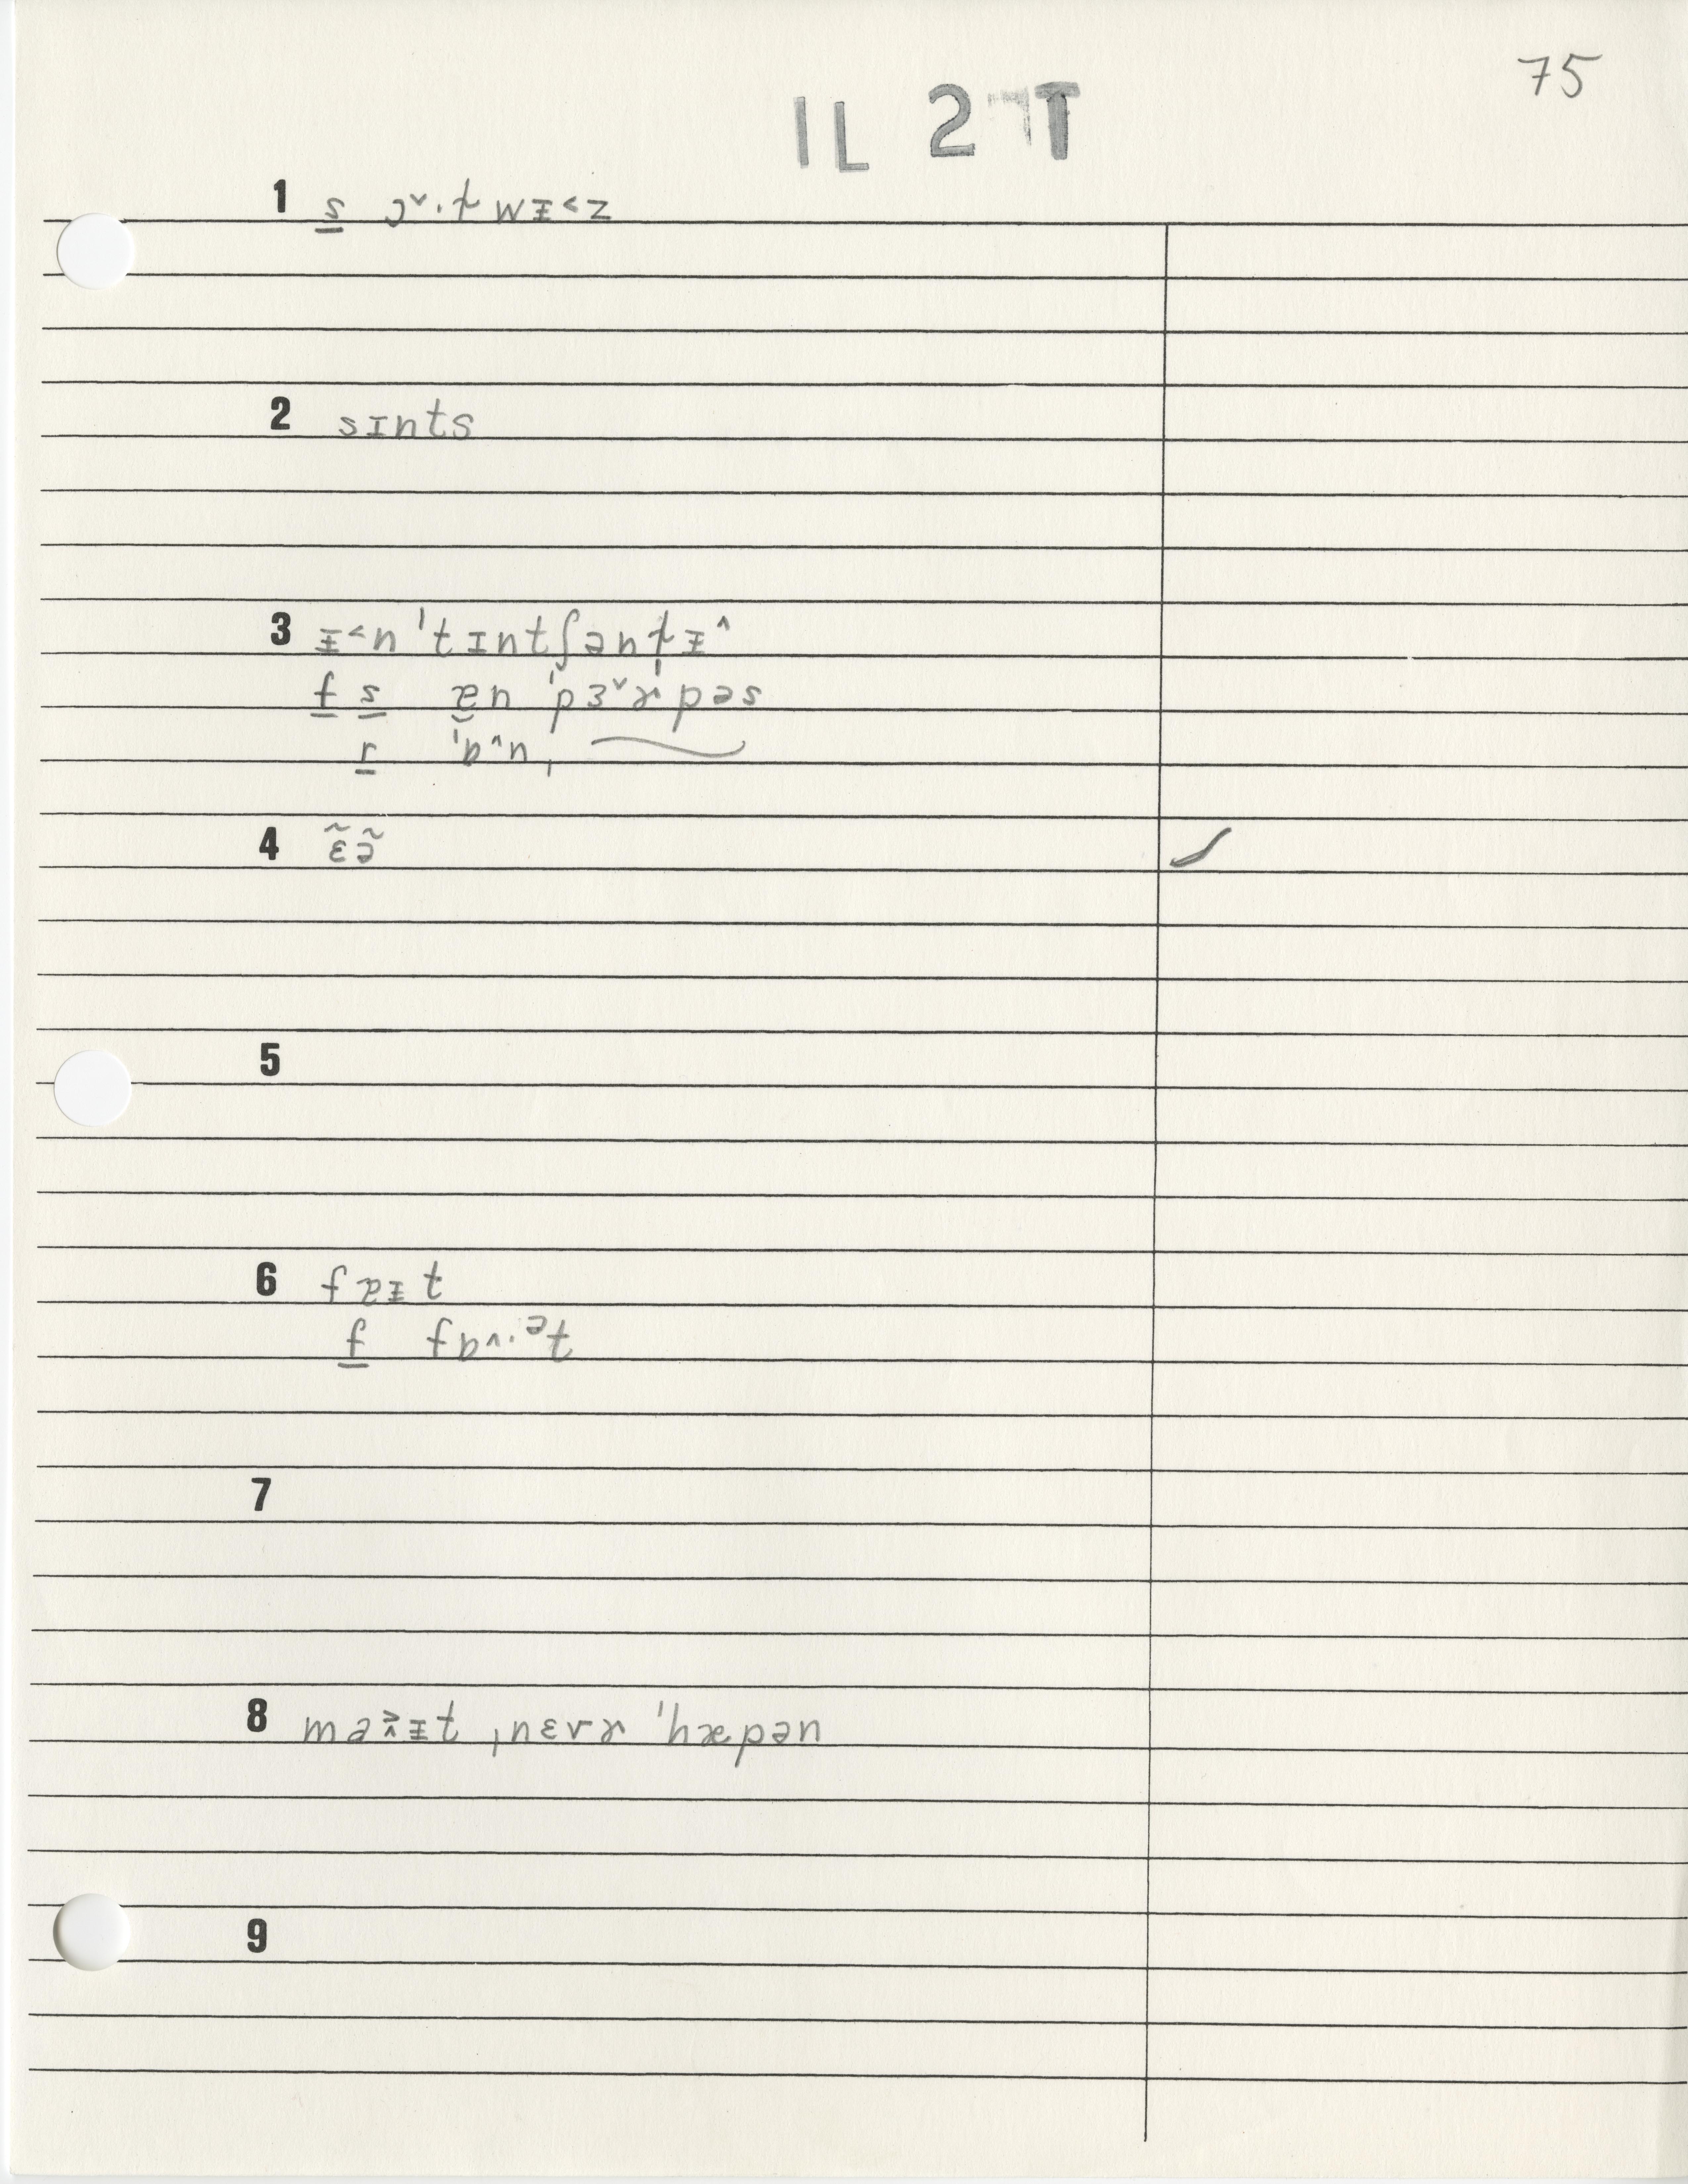 75
IL 2 T
1 s ɔ˅·t̬wɪ̵˂z
2 sɪnts
3 ɪ̵˂n ˈtɪntʃənt̬ɪ̵˄
f s ɐ̯n ˈpɜ˅ɚˈpəs
r ˈɒ˄nˌ
4 ɛ̃ə̃
5
6 fɐɪ̵t
f fɒ˄·ᵊt
7
8 maɪ̵t ˌnɛvɚ ˈhæpən
9